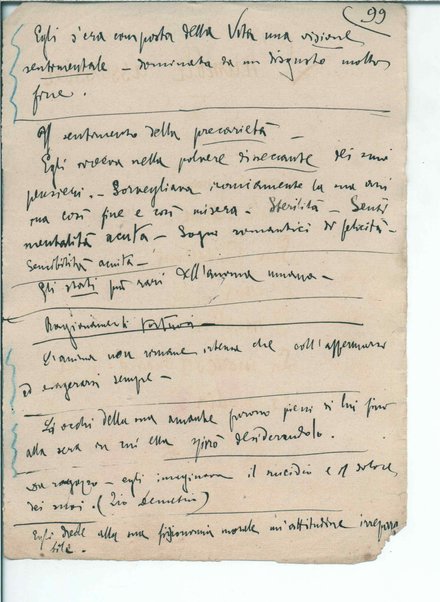 99
Egli s'era composta della Vita una visione
sentimentale – dominata da un disgusto molto
fine.
Il sentimento della precarietà –
Egli viveva nella polvere disseccante dei suoi
pensieri. – Sorvegliava ironicamente la sua ani
ma così fine e così misera. Sterilità – Senti
mentalità acuta – Sogni romantici di felicità –
Sensibilità acuita –
Gli stati più rari dell'anima umana –
Ragionamenti tortuosi –
L'anima non rimane intensa che coll'affermarsi
ed esagerarsi sempre –
Gli occhi della sua amante furono pieni di lui fino
alla sera in cui ella spirò desiderandolo.
Da ragazzo – egli imaginava il suicidio e il dolore
dei suoi. (Zio Demetrio)
Egli diede alla sua fisionomia morale un'attitudine irrepren
sibile.